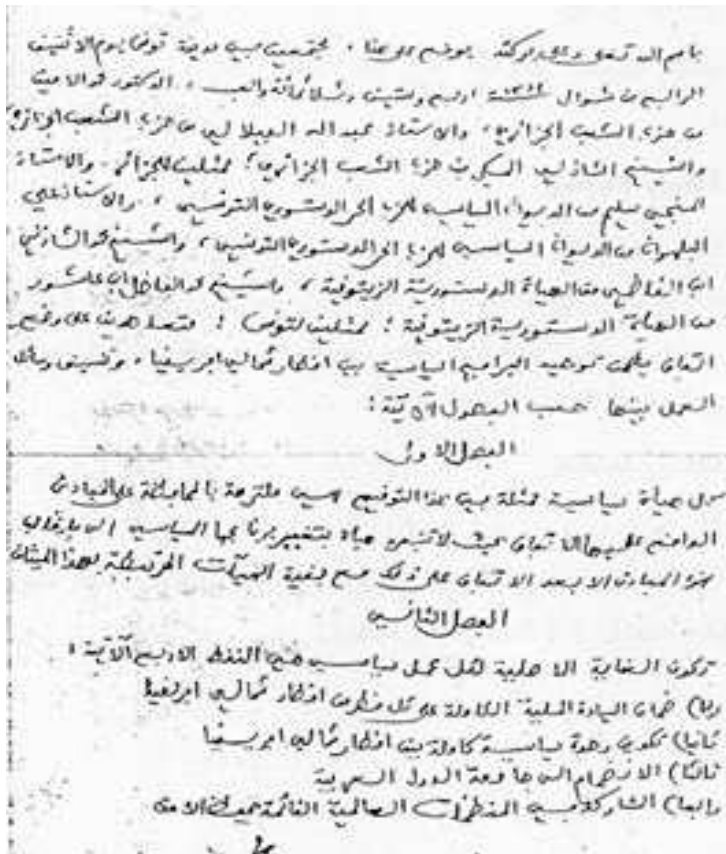 باسم الله تعلى وعلى بركته يوضع على هذا مجتمعين في مدينة تونس يوم الاثنين
الرابع من شوال سنة ١٣٦٤ اربع وستين وثلاثمائة والف، الدكتور محمد الامين
من حزب الشعب الجزائري، والاستاذ عبد الله الفيلالي من حزب الشعب الجزائري
والشيخ الشاذلي المكي من حزب الشعب الجزائري؛ ممثلين للجزائر. والاستاذ
المنجي سليم من الديوان السياسي للحزب الحر الدستوري التونسي، والاستاذ علي
البلهوان من الديوان السياسي للحزب الحر الدستوري التونسي، والشيخ محمد الشاذلي
ابن القاضي من الهيئة الدستورية الزيتونية، والشيخ محمد الفاضل ابن عاشور
من الهيئة الدستورية الزيتونية؛ ممثلين لتونس؛ متعاهدين على وضع
اتفاق يضمن توحيد البرامج السياسية بين اقطار شمالي افريقيا، وتنسيق وسائل
العمل بينها حسب الفصول الآتية:
الفصل الاول
كل هيئة سياسية ممثلة في هذا التوقيع هي ملتزمة بالمحافظة على المبادئ
الواقع عليها الاتفاق بحيث لا تنفرد هيئة بتغيير برنامجها السياسي
هذه المبادئ الا بعد الاتفاق على ذلك مع بقية الهيآت المرتبطة بهذا الميثاق
الفصل الثاني
تكون الغاية الاصلية لكل عمل سياسي هي النقط الاربع الآتية:
اولا) ضمان السيادة الكاملة على كل قطر من اقطار شمالي افريقيا
ثانيا) تكوين وحدة سياسية كاملة بين اقطار شمالي افريقيا
ثالثا) الانضمام الى جامعة الدول العربية
رابعا) المشاركة في المنظمات العالمية القائمة بحفظ الامن